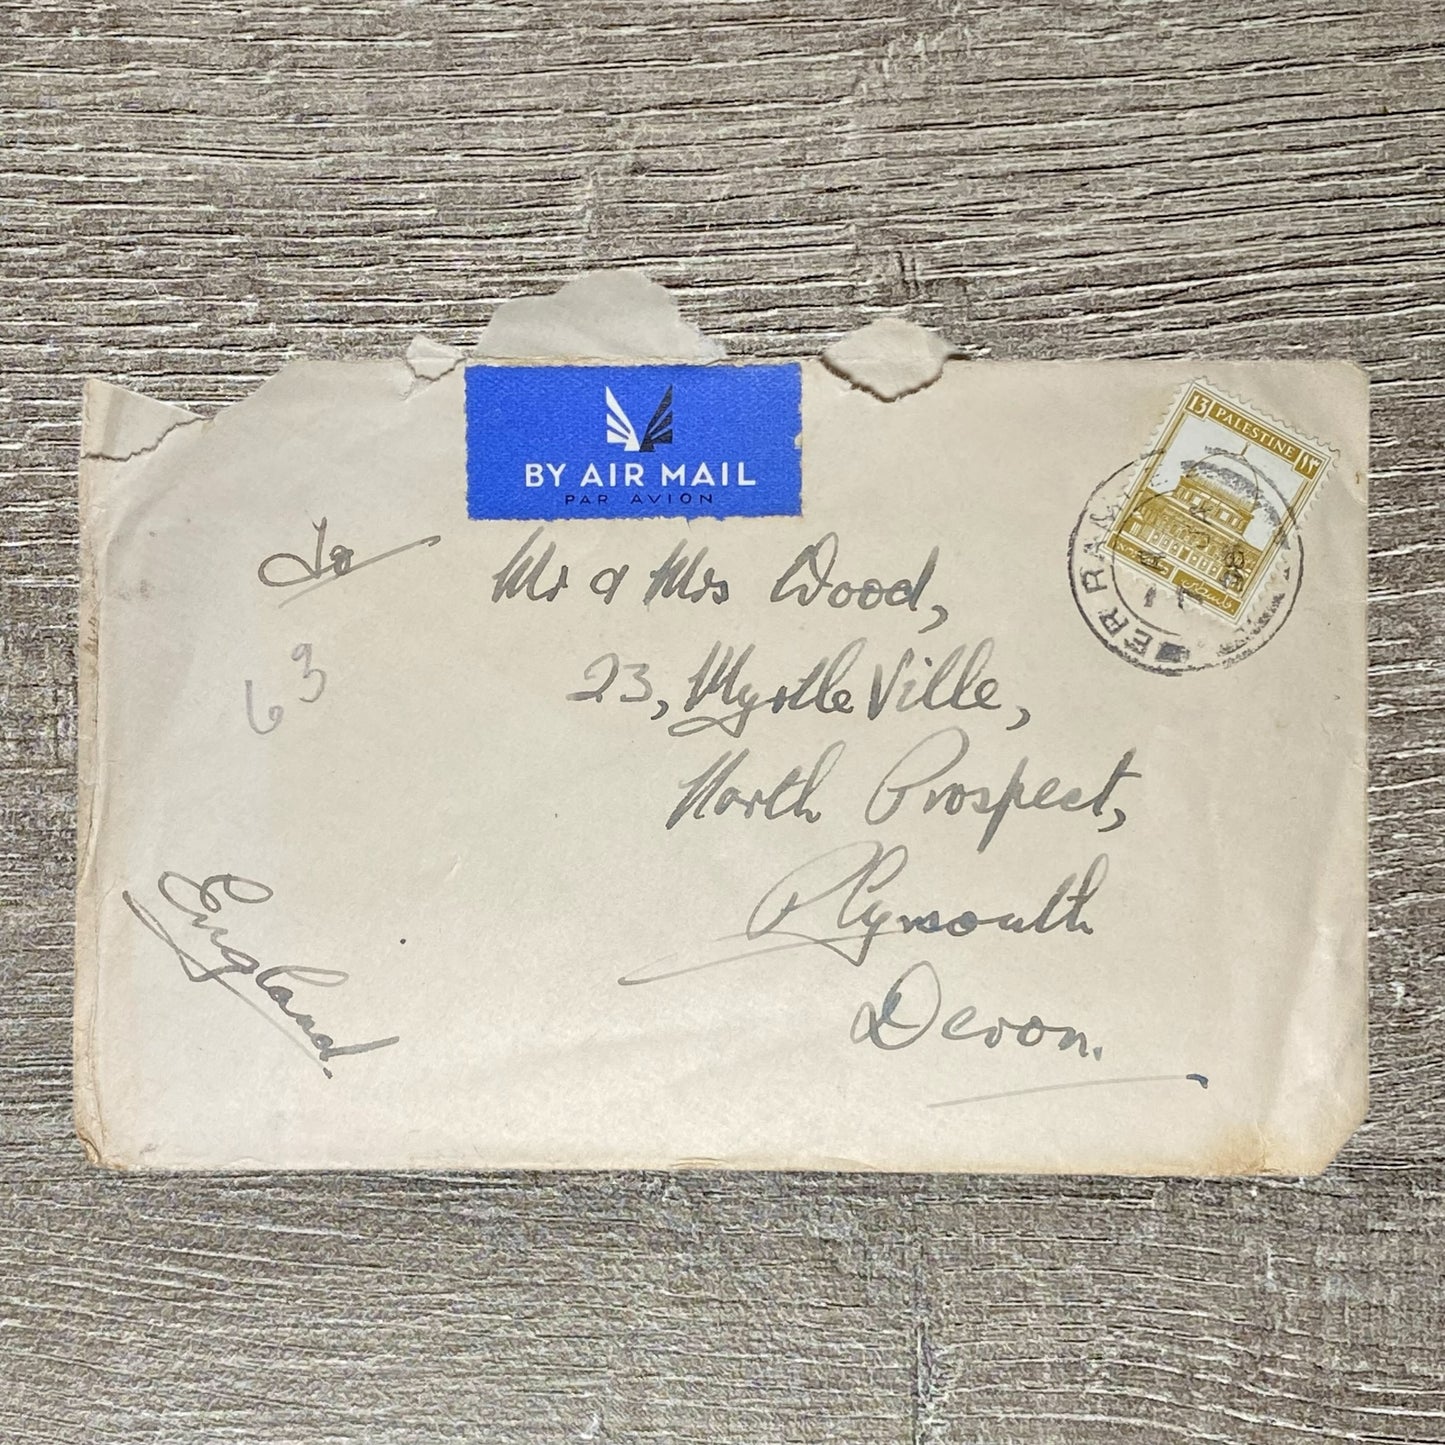 BY AIR MAIL
PAR AVION
13 PALESTINE ١٣
To
Mr & Mrs Wood,
23, Myrtle Ville,
North Prospect,
Plymouth
Devon.
England.
63